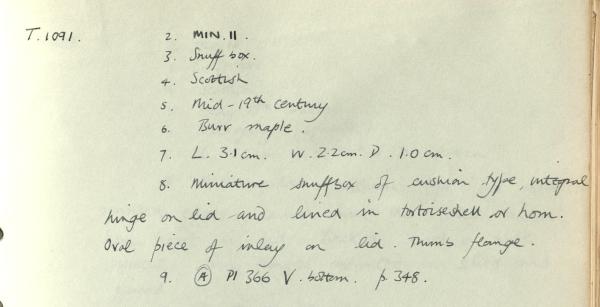 T.1091. 2. MIN. 11.
3. Snuff box.
4. Scottish
5. Mid-19th century
6. Burr maple.
7. L. 3.1cm. W. 2.2cm. D. 1.0cm.
8. Miniature snuffbox of cushion type, integral
hinge on lid and lined in tortoiseshell or horn.
Oval piece of inlay on lid. Thumb flange.
9. Ⓐ Pl 366 V. bottom. p. 348.